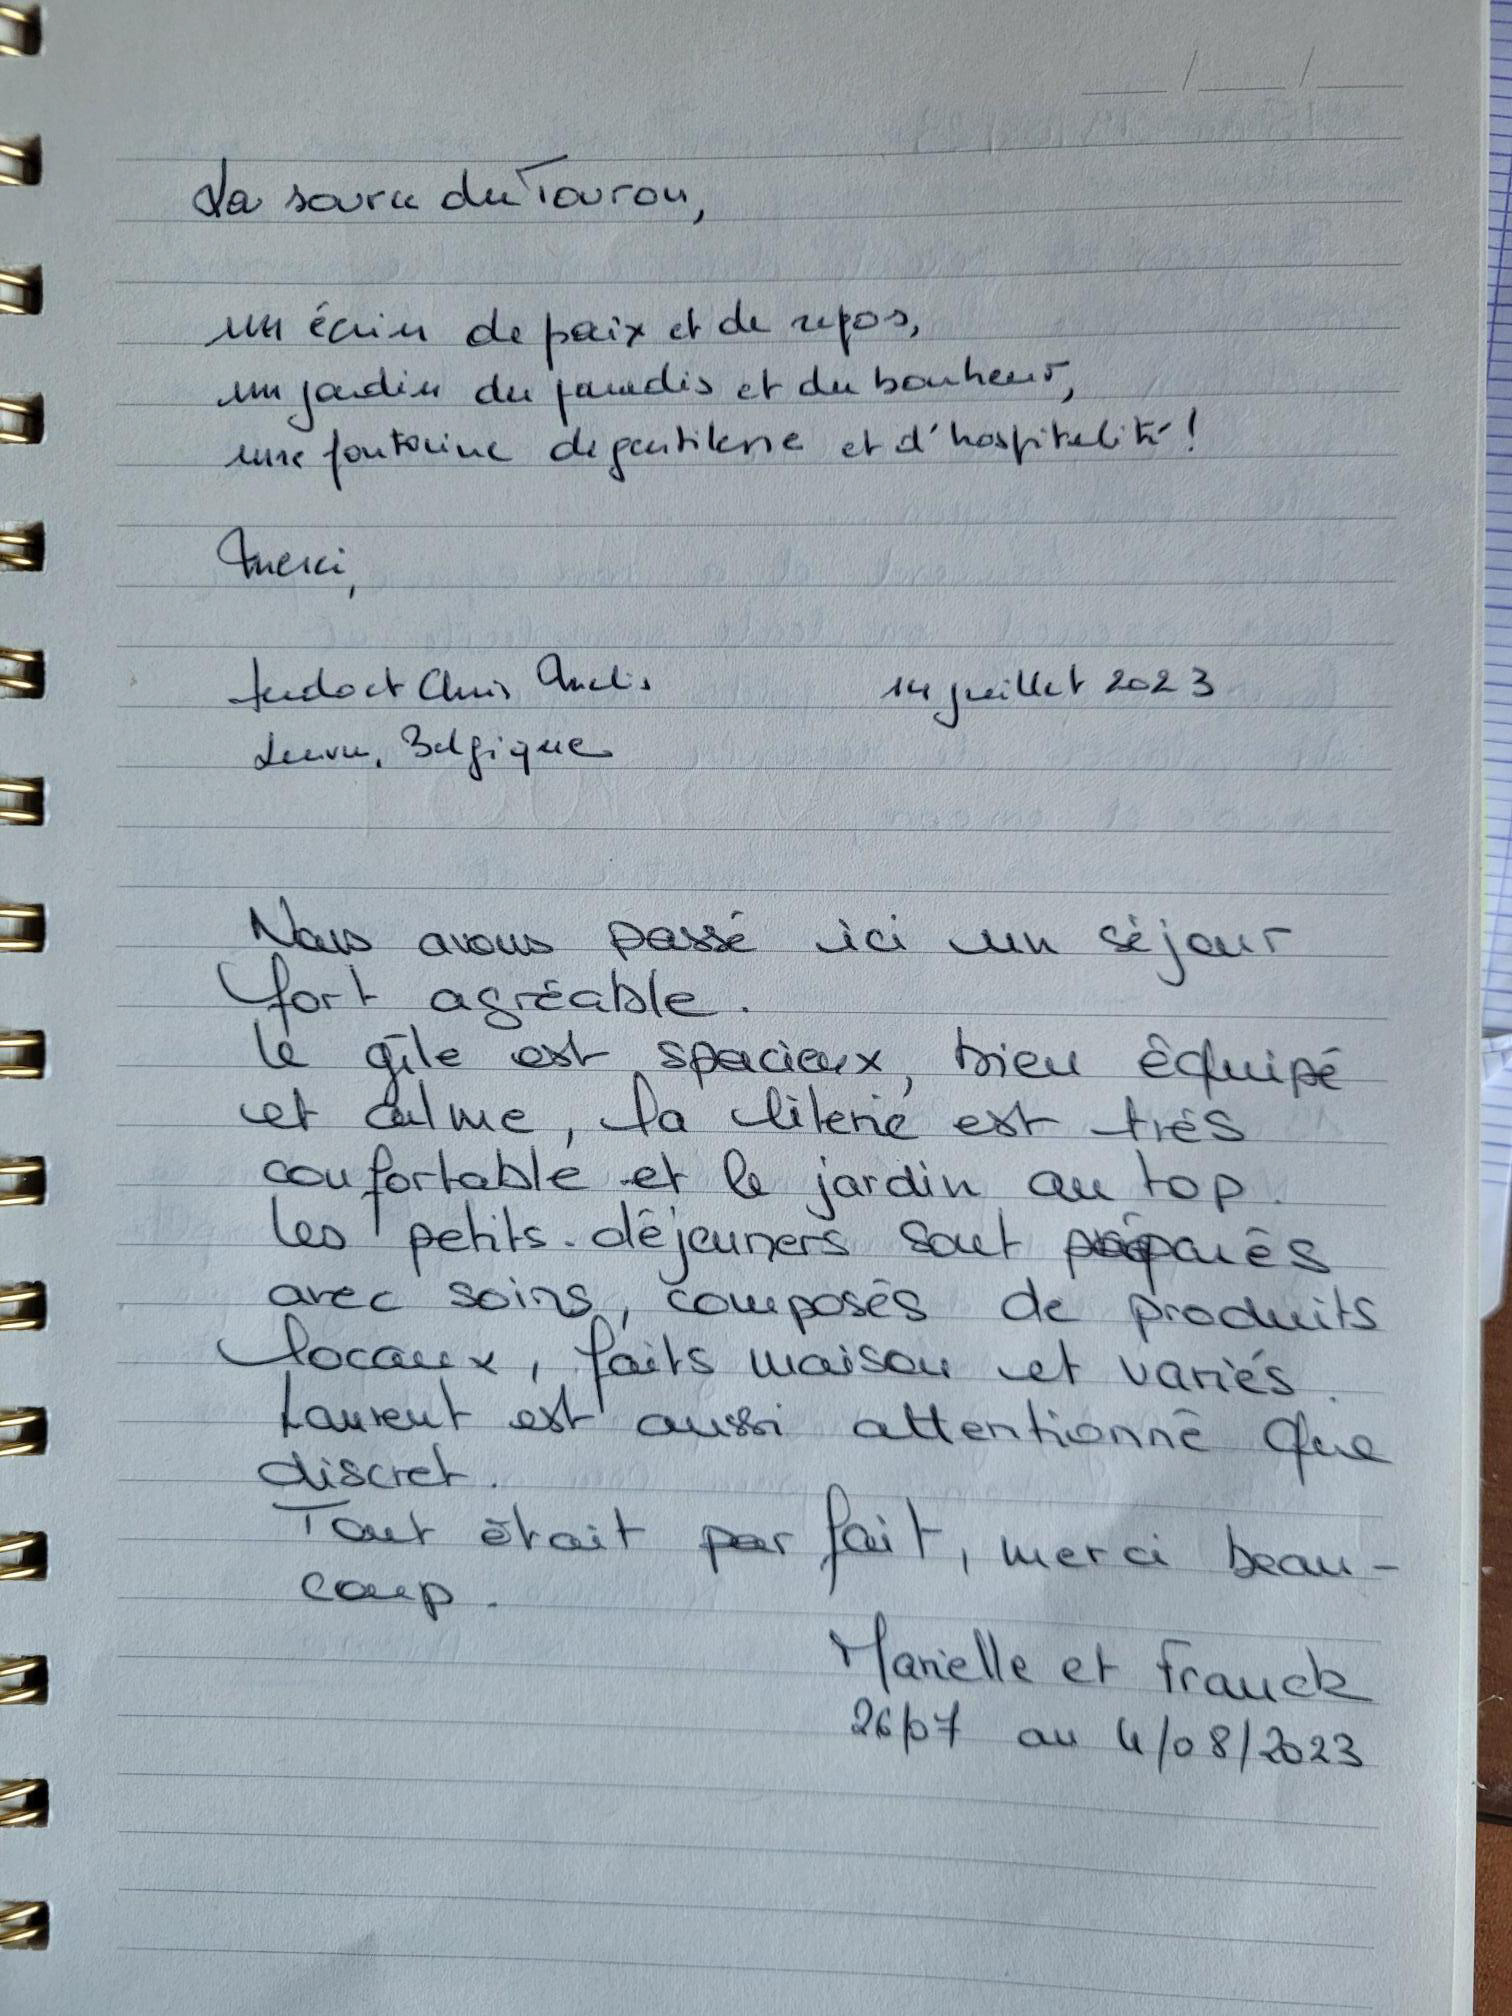 La source du Tourou,
un écrin de paix et de repos,
un jardin du paradis et du bonheur,
une fontaine de gentillesse et d'hospitalité!
Merci,
et Chris
14 juillet 2023
Belgique
Nous avons passé ici un séjour
fort agréable.
Le gîte est spacieux, bien équipé
et calme, la literie est très
confortable et le jardin au top.
Les petits-déjeuners sont préparés
avec soins, composés de produits
locaux, faits maison et variés.
Laurent est aussi attentionné que
discret.
Tout était parfait, merci beau-
coup.
Marielle et Franck
26/07 au 4/08/2023